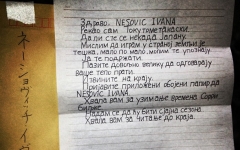 Здраво, NEŠOVIĆ IVANA
Рекао сам
Да ли сте се некада Јапану.
Мислим да играм у страној земљи је
тешка, мало по мало, молим те упознају
Да те подржати.
Пазите довољно велику да одговарају
ваше тело прати.
Извините на крају.
Пријавите приложени обојени папир да
NEŠOVIĆ IVANA.
Хвала вам за узимање времена
Надам се да ћу бити сјајна сезона
Хвала вам за читање до краја.